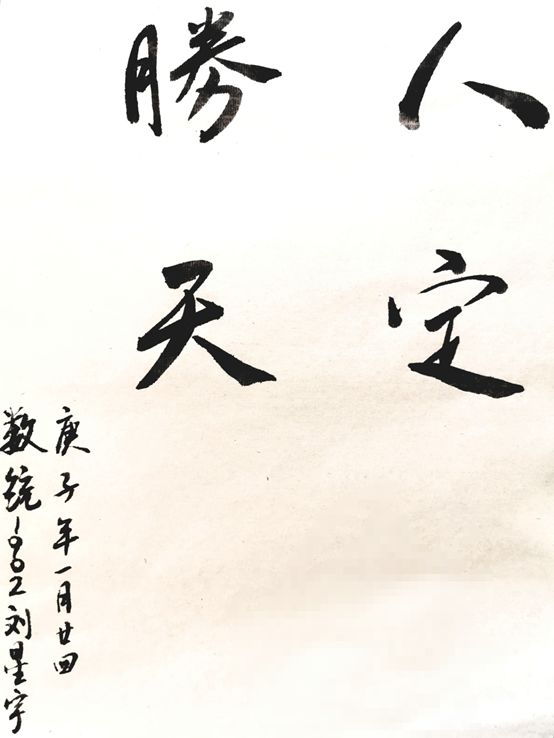 人定
勝天
庚子年一月廿四
数统1902刘星宇